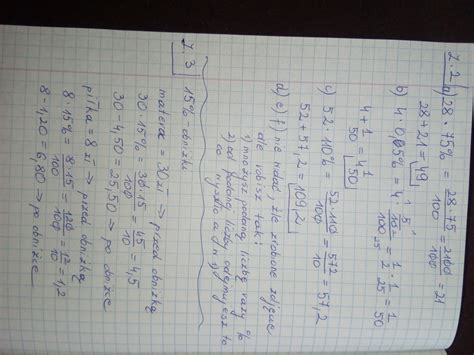 Z.2
a) 28 · 75% = 28·75/100 = 2100/100 = 21
28+21 = 49
4 + 1/50 = 4 1/50
c) 52 · 110% = 52·110/100 = 572/10 = 57,2
52+57,2 = 109,2
d) e) f) nie widać, źle zrobione zdjęcie
ale robisz tak:
1) mnożysz podaną liczbę razy %
2) od podanej liczby odejmujesz to
co wyszło
Z.3 15% - obniżki
30zł → przed obniżką
30·15% = 30·15/100 = 45/10 = 4,5
30-4,50 = 25,50 → po obniżce
piłka = 8 zł → przed obniżką
8·15% = 8·15/100 = 120/100 = 12/10 = 1,2
8-1,20 = 6,80 → po obniżce